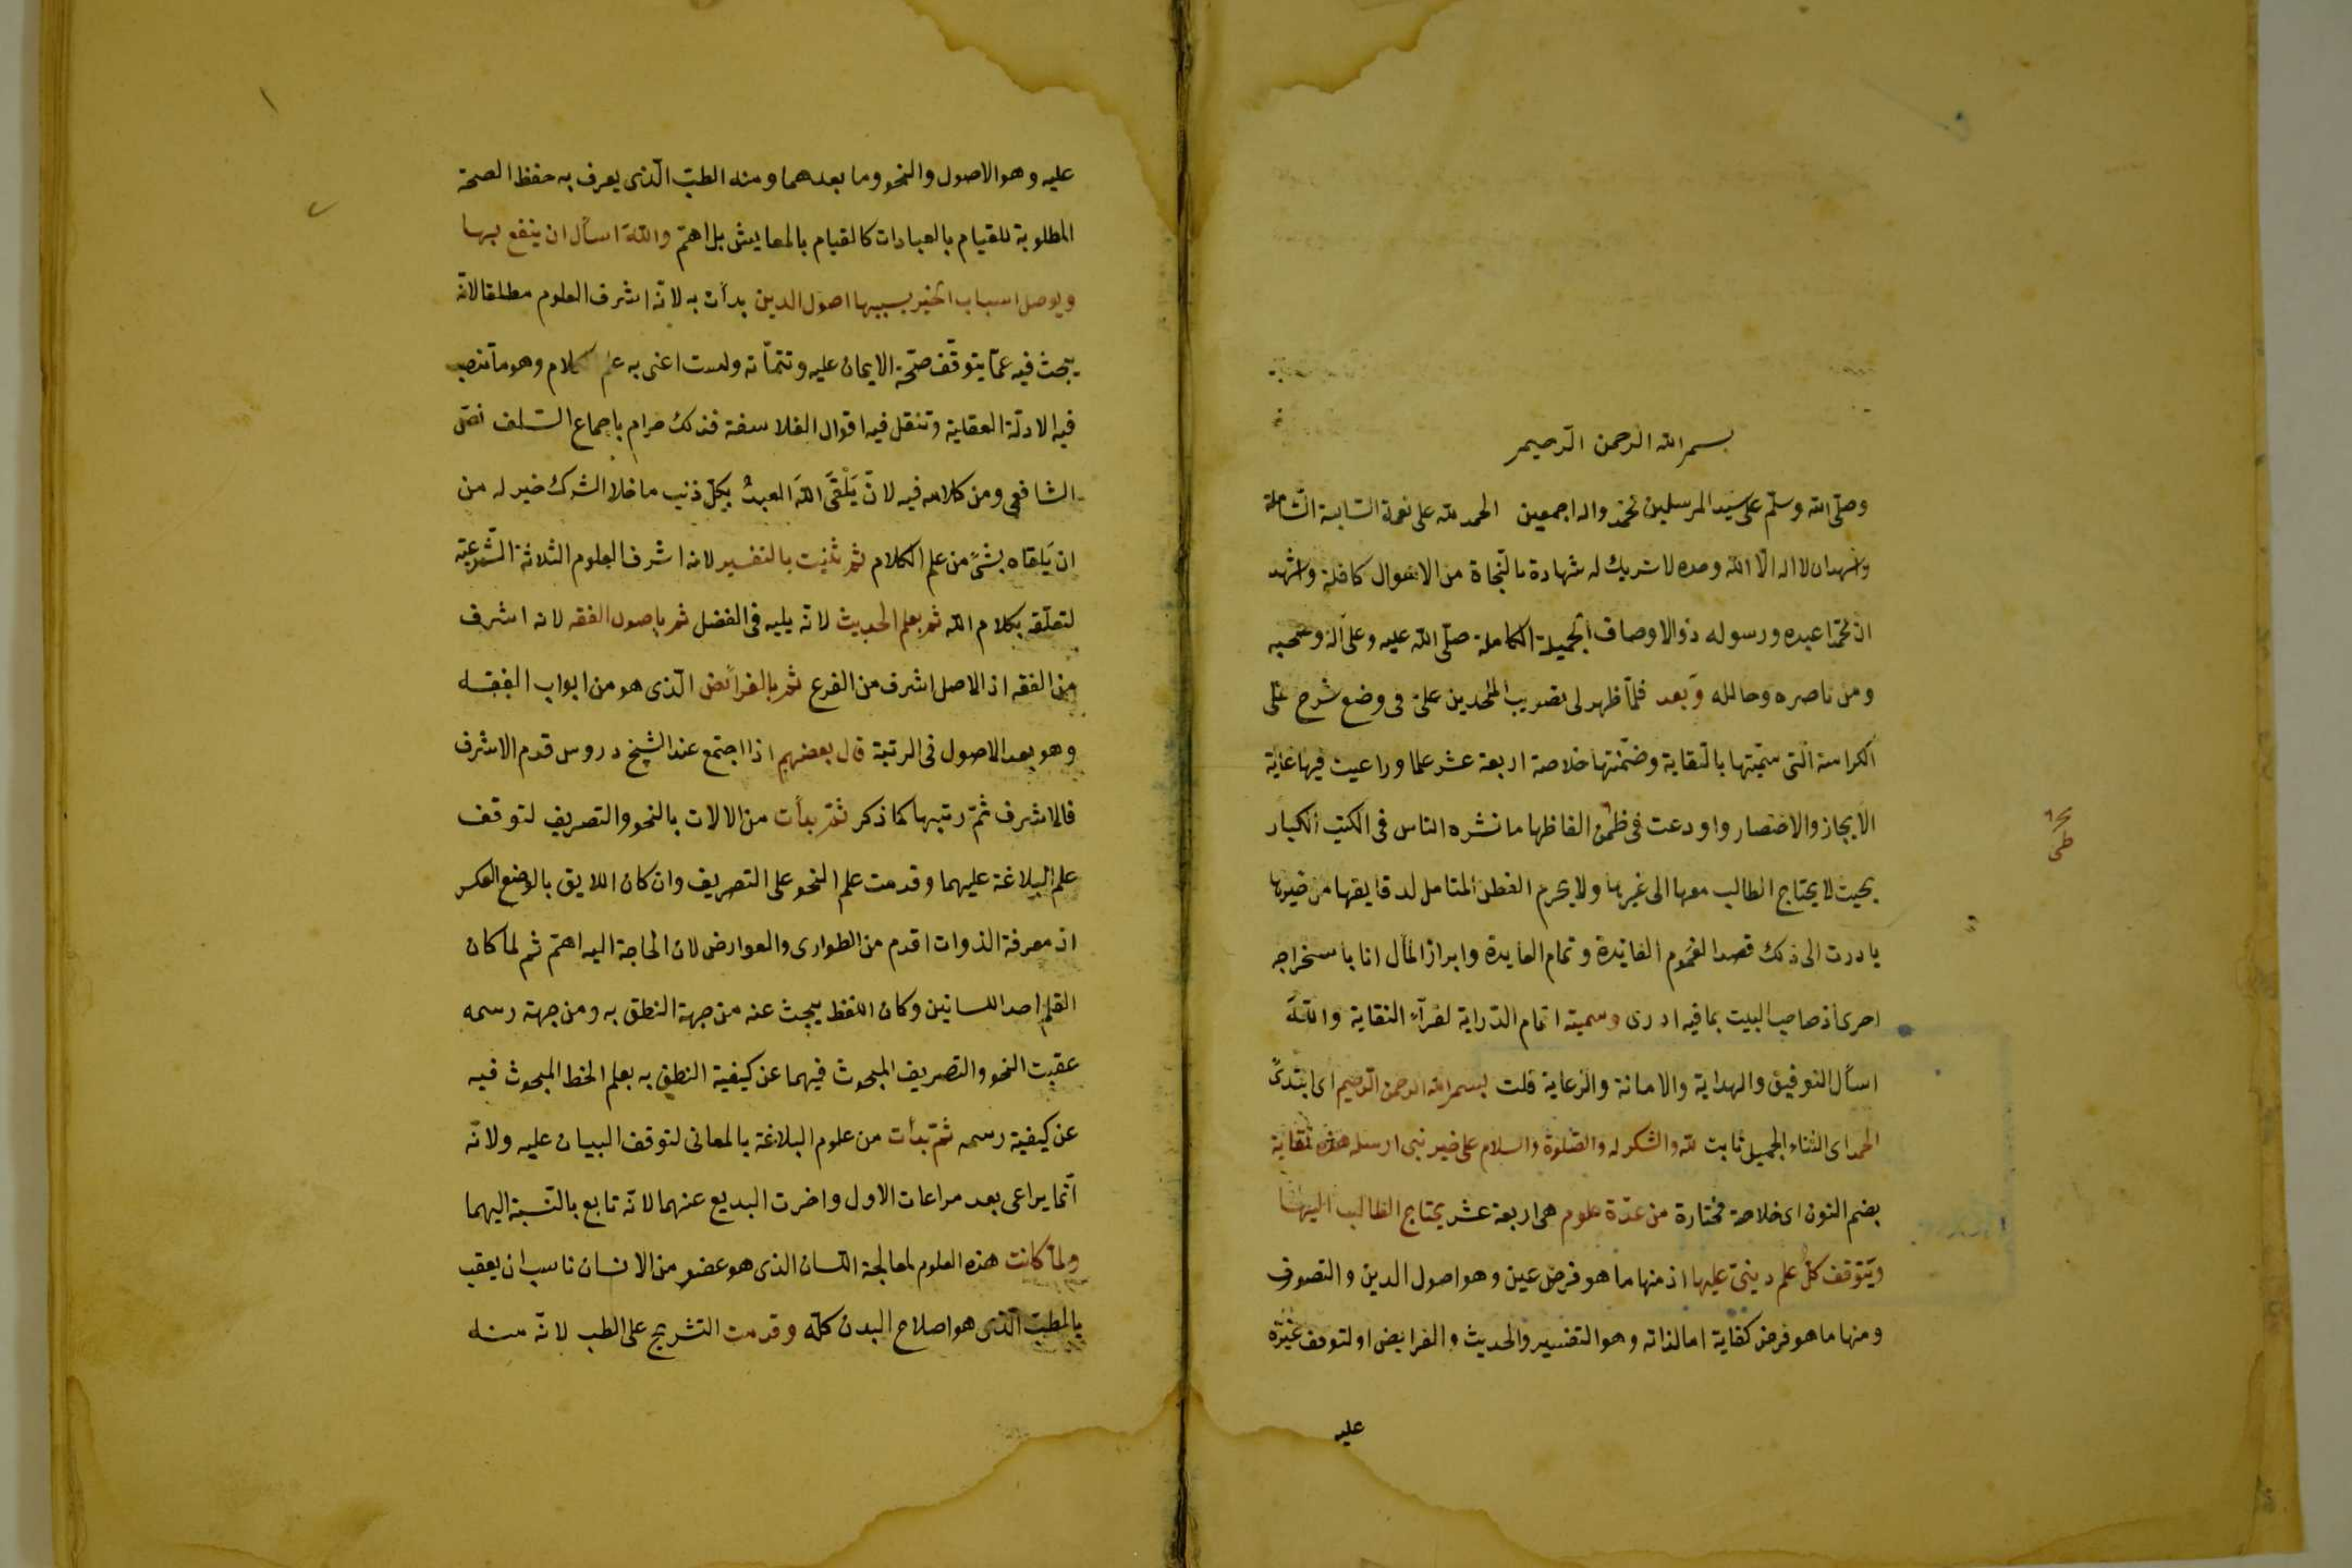 بسم الله الرحمن الرحيم
وصلّى الله وسلّم على سيد المرسلين محمّد واله اجمعين الحمد لله على نعمه السّابغة الشّاملة
واشهد ان لا اله الّا الله وحده لا شريك له شهادة بالنّجاة من الاهوال كافلة واشهد
ان محمّدا عبده ورسوله ذو الاوصاف الجميلة الكاملة صلّى الله عليه وعلى آله وصحبه
ومن ناصره وحالله وبعد فلمّا ظهر لى تصويب الملحدين علىّ فى وضع شرح على
الكراسة الّتى سمّيتها بالنّقاية وضمّنتها خلاصة اربعة عشر علما وراعيت فيها غاية
الايجاز والاختصار واودعت فى طىّ الفاظها ما نشره الناس فى الكتب الكبار
بحيث لا يحتاج الطالب معها الى غيرها ولا يحرم الفطن المتامل لدقايقها من خيرها
بادرت الى ذلك قصدا لعموم الفائدة وتمام العايدة وابراز المآل انا باستخراجه
احرى اذ صاحب البيت بما فيه ادرى وسميته اتمام الدّراية لقرّآء النقاية والله
اسأل التوفيق والهداية والامانة والرّعاية قلت بسم الله الرحمن الرّحيم اى ابتدئ
الحمد اى الثناء الجميل ثابت لله والشكر له والصّلوة والسلام على خير نبى ارسله هذه نقاية
بضم النون اى خلاصة مختارة من عدّة علوم هى اربعة عشر يحتاج الطالب اليها
ويتوقف كل علم دينىّ عليها اذ منها ما هو فرض عين وهو اصول الدين والتصوف
ومنها ما هو فرض كفاية اما لذاته وهو التفسير والحديث والفرايض او لتوقف غيره
عليه
طى
عليه وهو الاصول والنحو وما بعدهما ومنه الطبّ الّذى يعرف به حفظ الصحة
المطلوبة للقيام بالعبادات كالقيام بالمعايش بل اهمّ والله اسأل ان ينفع بها
ويوصل اسباب الخير بسببها اصول الدين بدأت به لانّه اشرف العلوم مطلقا لانّه
يبحث فيه عمّا يتوقّف صحّة الايمان عليه وتتمّاته ولست اعنى به علم الكلام وهو ما تنصب
فيه الادلّة العقلية وتنقل فيه اقوال الفلاسفة فذلك حرام باجماع السّلف نصّ
الشافعى ومن كلامه فيه لان يَلْقَى اللهَ العبدُ بكلّ ذنب ما خلا الشرك خير له من
ان يَلقاه بشئ من علم الكلام ثم ثنيت بالتفسير لانه اشرف العلوم الثلاثة الشّرعيّة
لتعلّقه بكلام الله ثم بعلم الحديث لانّه يليه فى الفضل ثم باصول الفقه لانه اشرف
من الفقه اذ الاصل اشرف من الفرع ثم بالفرائض الّذى هو من ابواب الفقه
وهو بعد الاصول فى الرتبة قال بعضهم اذا اجتمع عند الشيخ دروس قدم الاشرف
فالاشرف ثمّ رتبها كما ذكر ثمّ بدأت من الالات بالنحو والتصريف لتوقف
علم البلاغة عليهما وقدمت علم النحو على التصريف وان كان اللايق بالوضع العكس
اذ معرفة الذوات اقدم من الطوارى والعوارض لان الحاجة اليه اهمّ ثم لما كان
القلم احد اللسانين وكان اللفظ يبحث عنه من جهة النطق به ومن جهة رسمه
عقبت النحو والتصريف المبحوث فيهما عن كيفية النطق به بعلم الخط المبحوث فيه
عن كيفية رسمه ثمّ بدأت من علوم البلاغة بالمعانى لتوقف البيان عليه ولانّه
انّما يراعى بعد مراعات الاول واخرت البديع عنهما لانّه تابع بالنّسبة اليهما
ولمّا كانت هذه العلوم لمعالجة اللسان الذى هو عضو من الانسان ناسب ان يعقب
بالطبّ الّذى هو اصلاح البدن كلّه وقدمت التشريح على الطب لانّه منه